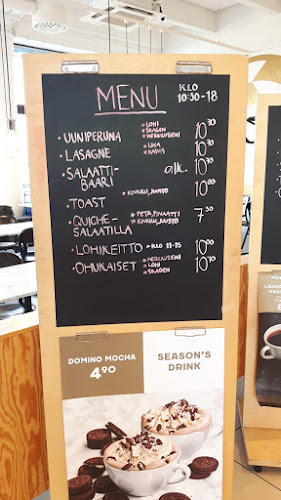 MENU KLO
10:30-18
• UUNIPERUNA • LOHI
• SKAGEN
• HERKKUSIENI 10 70
• LASAGNE • LIHA
• KASVIS 10 70
• SALAATTI-
BAARI alk. 10 70
• TOAST • KINKKU, JUUSTO 10 00
• QUICHE-
SALAATILLA • FETA, PINAATTI
• KINKKU, JUUSTO 7 50
• LOHIKEITTO • KLO 11-15 10 00
• OHUKAISET • HERKKUSIENI
• LOHI
• SKAGEN 10 70
DOMINO MOCHA
4 90
SEASON'S
DRINK